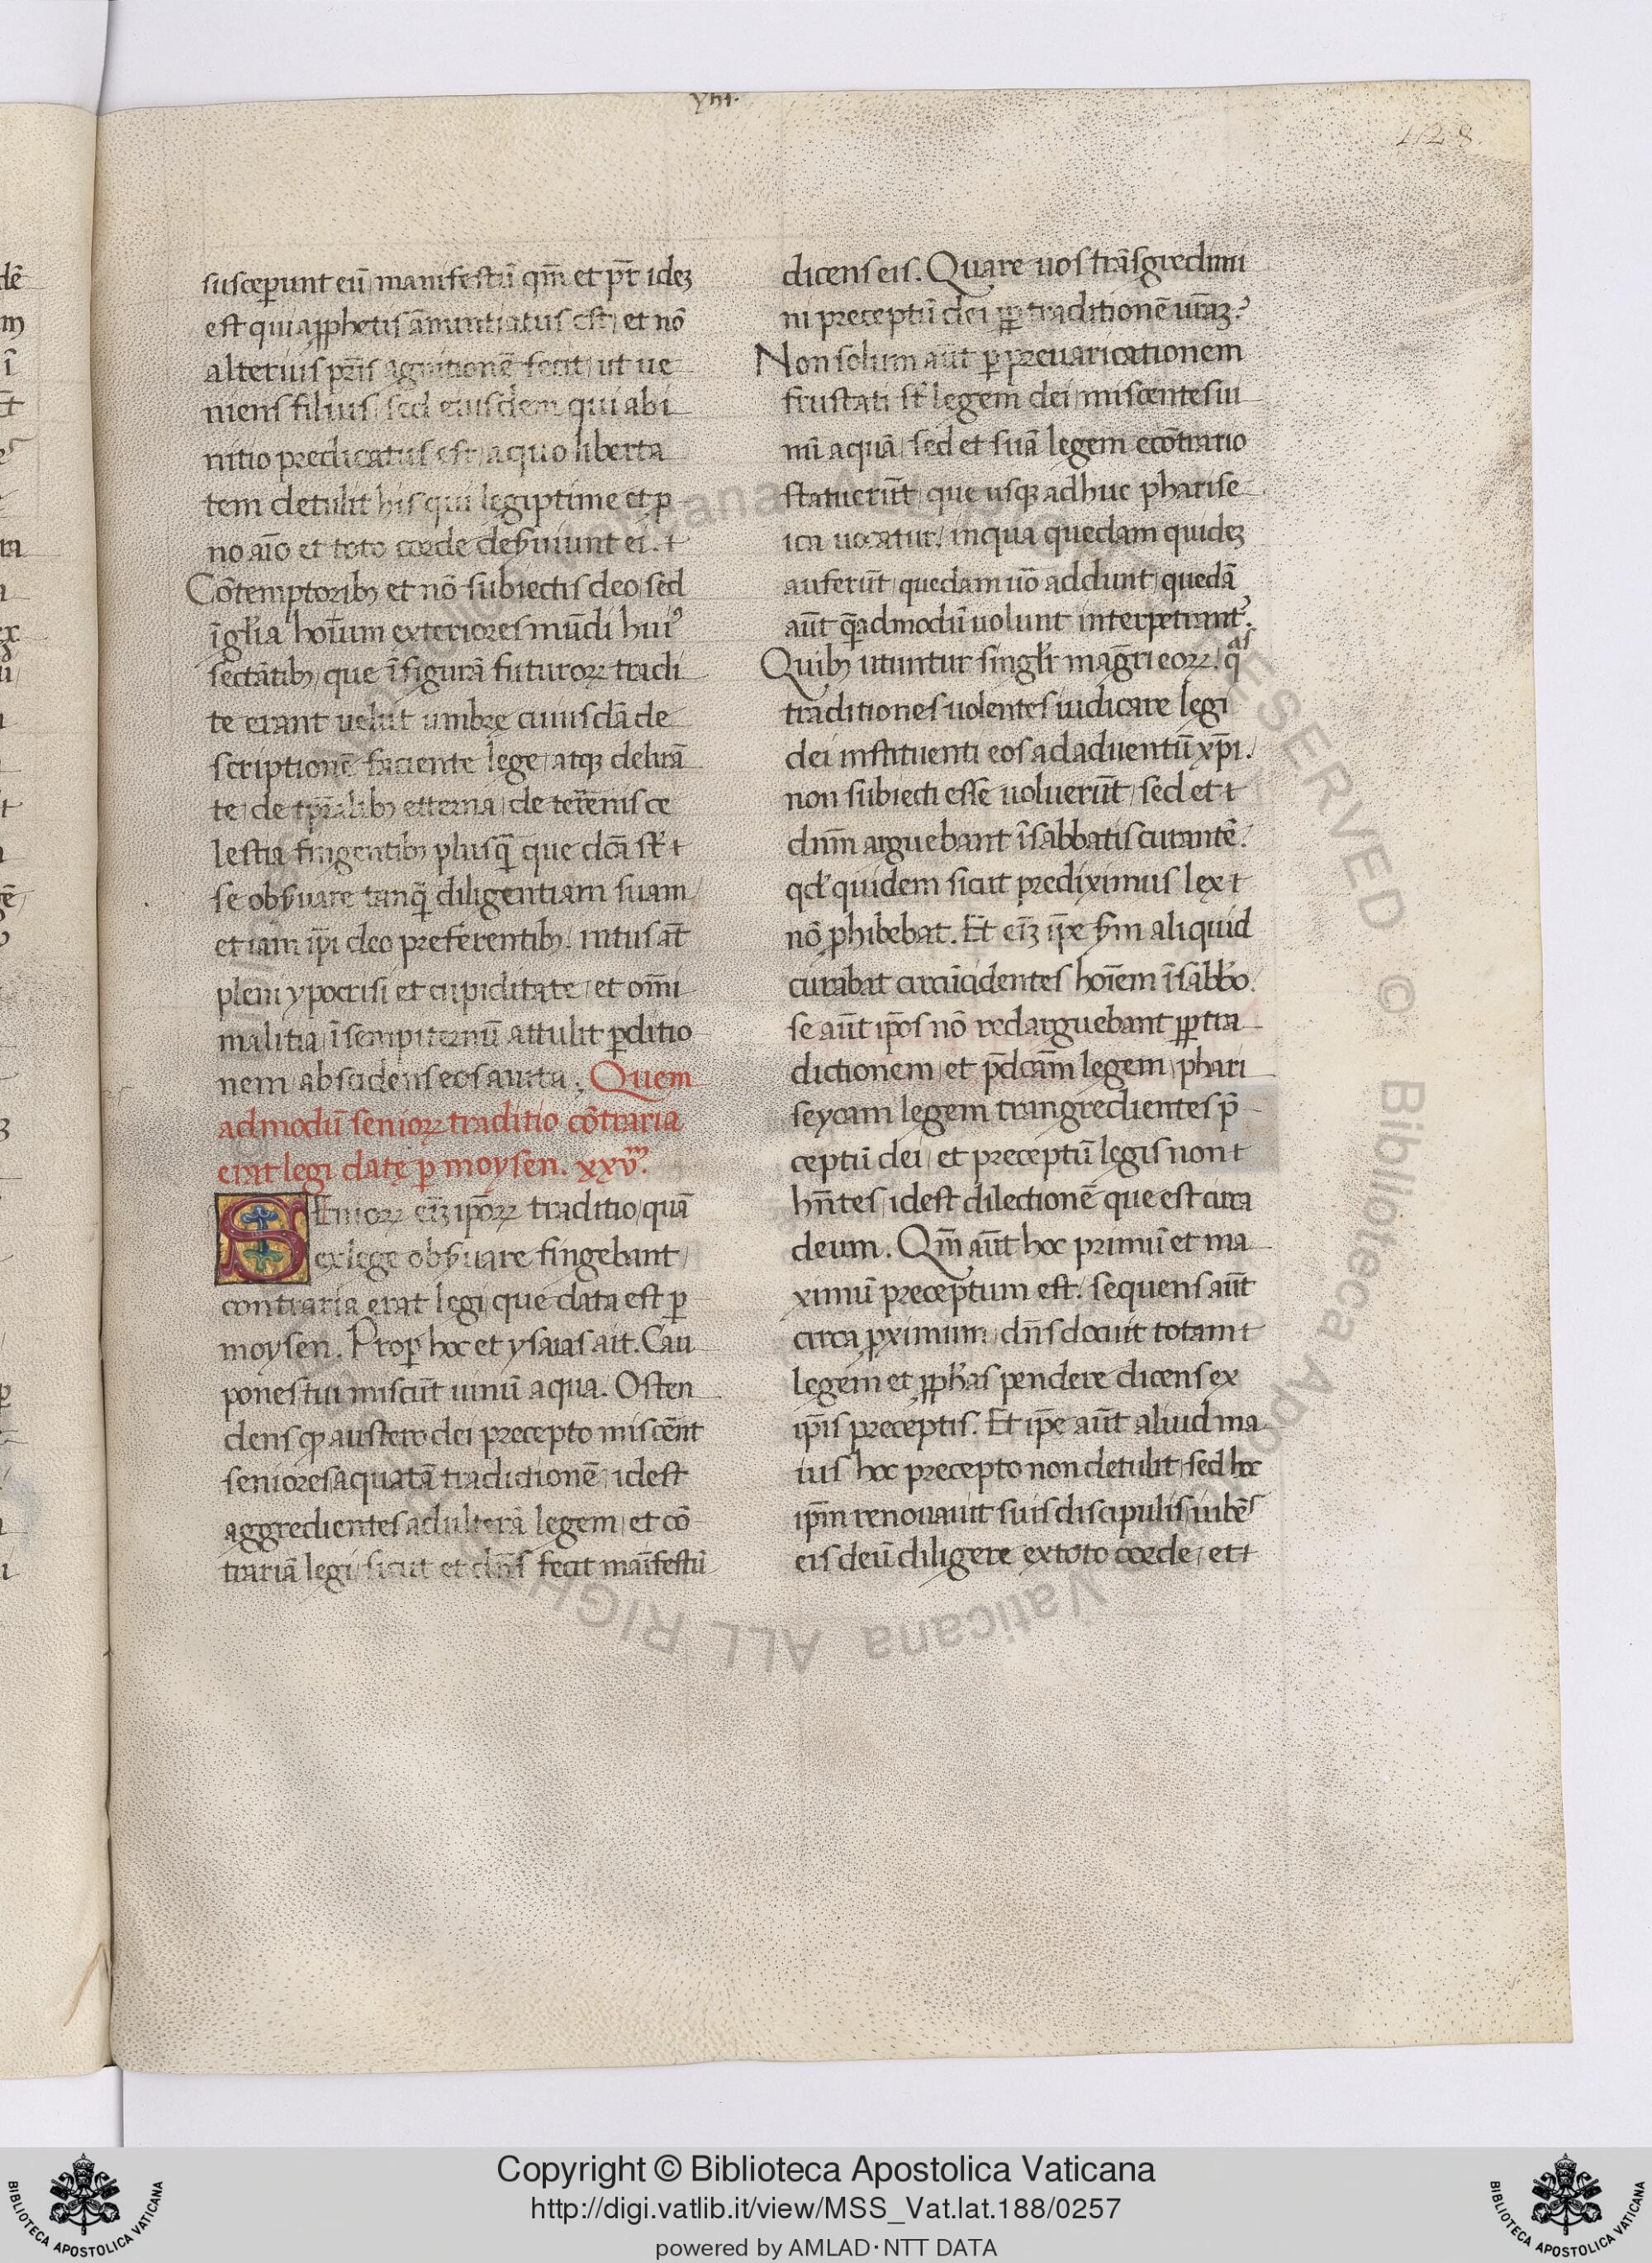 yhs.
128.
susceperunt eū manifestū qm̄ et pr̄ idez
est qui a ꝓphetis ānuntiatus est, et nō
alterius pr̄is agnitionē fecit, ut ue
niens filius, sed eiusdem qui ab i
nitio predicatus est, a quo liberta
tem detulit his qui legiptime et p
no aīo et toto corde deẜuiunt ei. t
Cōtemptoribꝫ et nō subiectis deo, sed
ī glīa hoīum exteriores mūdi huiꝰ
sectātibꝫ, que ī figurā futuroꝝ tradi
te erant uelut umbre cuiusdā de
scriptionē faciente lege, atqꝫ delirā
te, de tp̄ralibꝫ etterna, de terrenis ce
lestia fingentibꝫ plusq̄ que dc̄ā st̄ t
se obẜuare tanq̄ diligentiam suam,
etiam ip̄i deo preferentibꝫ. intus at̄
pleni ypocrisi et cupiditate, et om̄i
malitia, ī sempiternū attulit ꝑditio
nem, abscidens eos a uita. Quem
admodū senioꝝ traditio cōtraria
erat legi datę ꝑ moysen. xxvᵐ.
SEnioꝝ eīꝫ ip̄oꝝ traditio, quā
ex lege obẜuare fingebant,
contraria erat legi, que data est ꝑ
moysen. Propꝑ hoc et ysaias ait. Cau
pones tui miscūt uinū aqua. Osten
dens ꝙ austero dei precepto miscēnt
seniores aquatā tradictionē, idest
aggredientes adulterā legem, et cō
trariā legi, sicut et dn̄s fecit manīfestū
dicens eis. Quare uos trāsgredimi
ni preceptū dei ꝓpꝑ traditionē ur̄aꝫ?
Non solum aūt ꝑ preuaricationem
frustati st̄ legem dei, miscentes ui
nū aquā, sed et suā legem ecōtrario
statuerūt, que usqꝫ adhuc pharise
ica uocatur. in qua quedam quideꝫ
auferūt, quedam uō addunt, quedā
aūt q̄admodū uolunt interpetrantꝰ.
Quibꝫ utuntur singlr̄ magr̄i eoꝝ. qᵃˢ
traditiones uolentes iudicare legi
dei instituenti eos ad aduentū xp̄i.
non subiecti esse uoluerūt, sed et t
dnm̄ arguebant ī sabbatis curantē.
qd̄ quidem sicut prediximus lex t
nō ꝓhibebat. Et eīꝫ ip̄e ẜm aliquid
curabat circūcidentes hoīem ī sabb̄o.
se aūt ip̄os nō redarguebant ꝓpꝑ tra
dictionem, et p̄dcām legem, phari
seycam legem trangredientes p̄
ceptū dei, et preceptū legis non t
hn̄tes, idest dilectionē que est circa
deum. Qm̄ aūt hoc primū et ma
ximū preceptum est. sequens aūt
circa ꝓximum, dn̄s docuit totam t
legem et ꝓpħas pendere dicens ex
ip̄is preceptis. Et ip̄e aūt aliud ma
ius hoc precepto non detulit, sed hoc
ip̄m renouauit suis discipulis, iubēˢ
eis deū diligere ex toto corde, et t
Copyright © Biblioteca Apostolica Vaticana
http://digi.vatlib.it/view/MSS_Vat.lat.188/0257
powered by AMLAD·NTT DATA
BIBLIOTECA APOSTOLICA VATICANA
BIBLIOTECA APOSTOLICA VATICANA